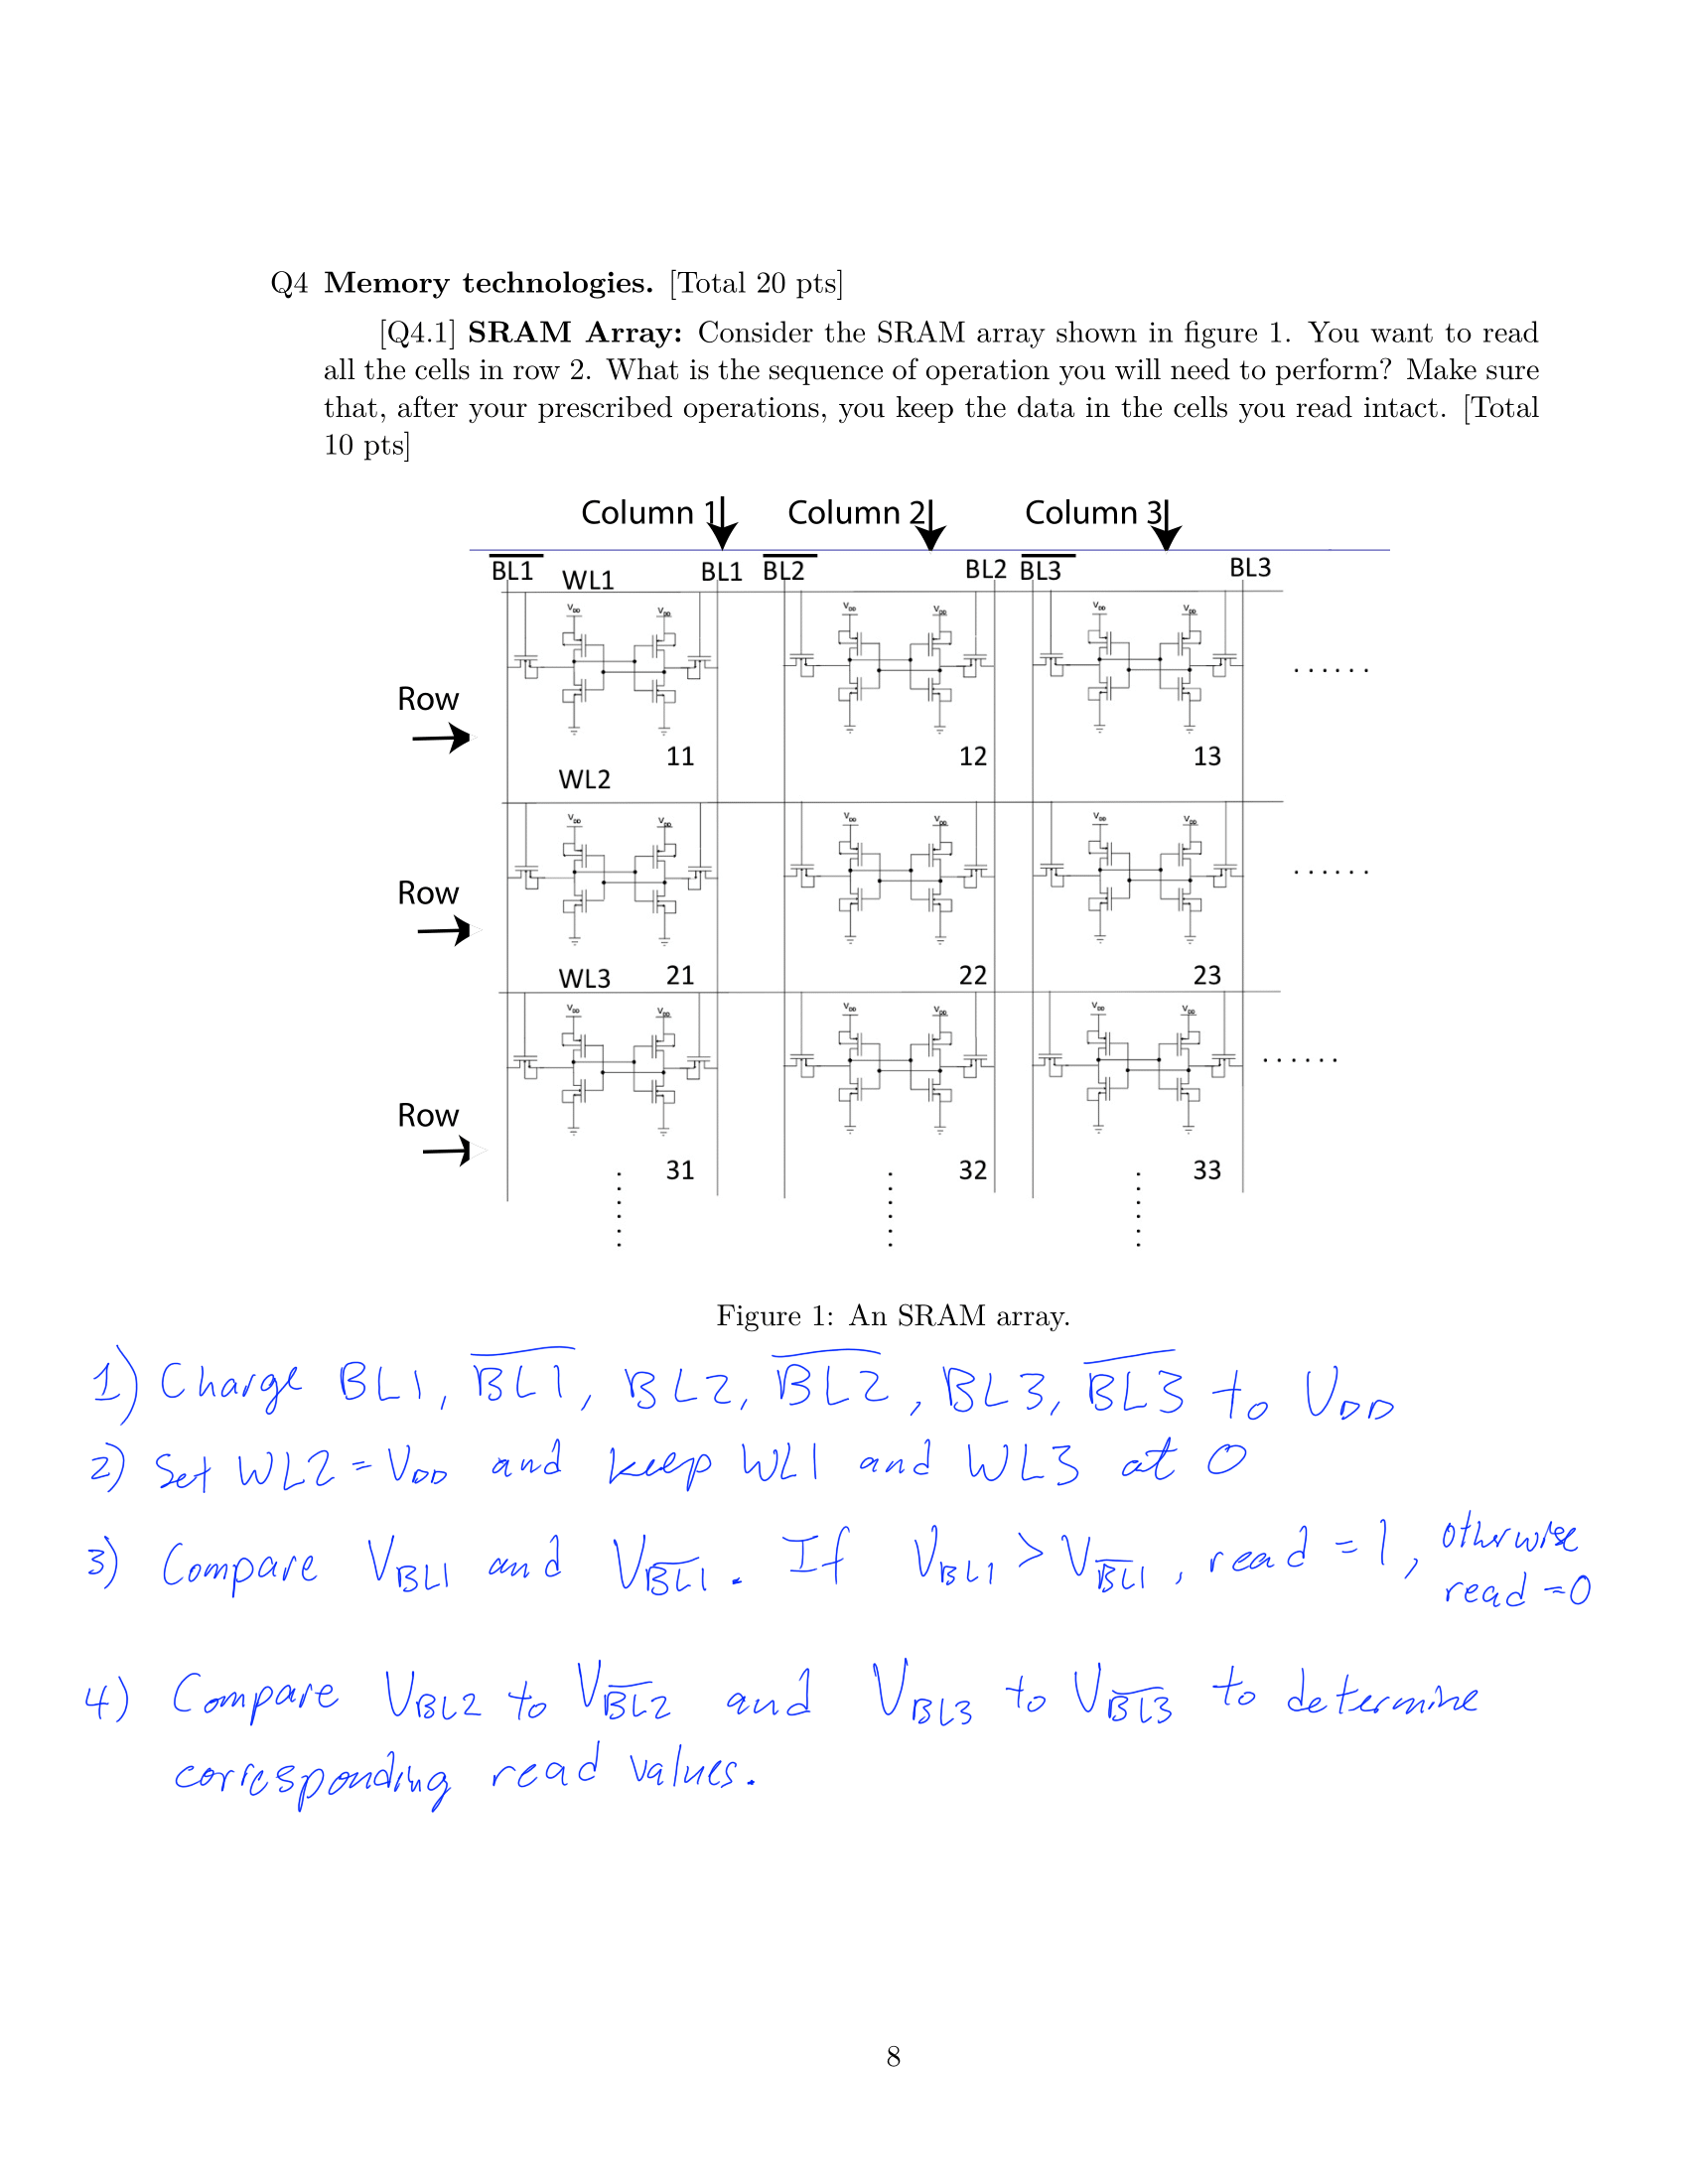 Q4 Memory technologies. [Total 20 pts]
[Q4.1] SRAM Array: Consider the SRAM array shown in figure 1. You want to read
all the cells in row 2. What is the sequence of operation you will need to perform? Make sure
that, after your prescribed operations, you keep the data in the cells you read intact. [Total
10 pts]
Column 1 Column 2 Column 3
B̅L̅1̅ WL1 BL1 B̅L̅2̅ BL2 B̅L̅3̅ BL3
V_DD V_DD V_DD V_DD V_DD V_DD
......
Row
11 12 13
WL2
V_DD V_DD V_DD V_DD V_DD V_DD
......
Row
WL3 21 22 23
V_DD V_DD V_DD V_DD V_DD V_DD
......
Row
31 32 33
Figure 1: An SRAM array.
1) Charge BL1, B̅L̅1̅, BL2, B̅L̅2̅, BL3, B̅L̅3̅ to V_DD
2) Set WL2 = V_DD and keep WL1 and WL3 at 0
3) Compare V_BL1 and V_B̅L̅1̅. If V_BL1 > V_B̅L̅1̅, read = 1, otherwise
read = 0
4) Compare V_BL2 to V_B̅L̅2̅ and V_BL3 to V_B̅L̅3̅ to determine
corresponding read values.
8